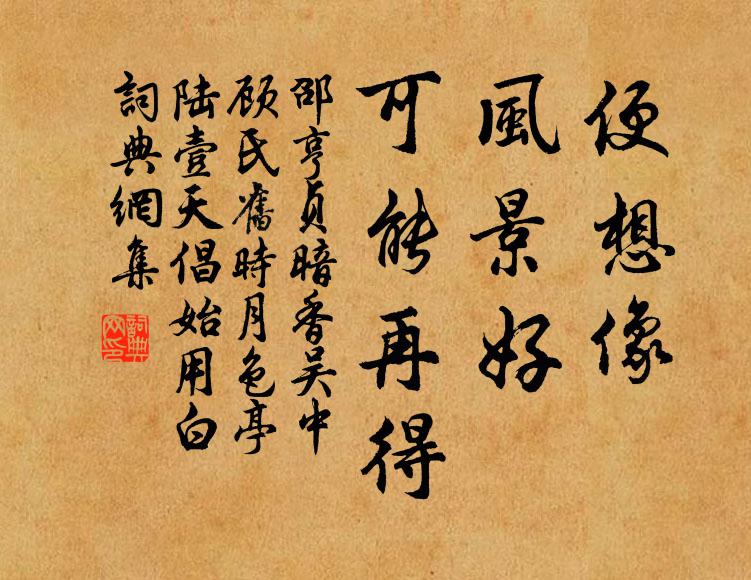 便想像
風景好
可能再得
邵亨貞暗香吴中
顾氏舊時月色亭
陆壹天倡始用白
詞典網集
詞典
网印